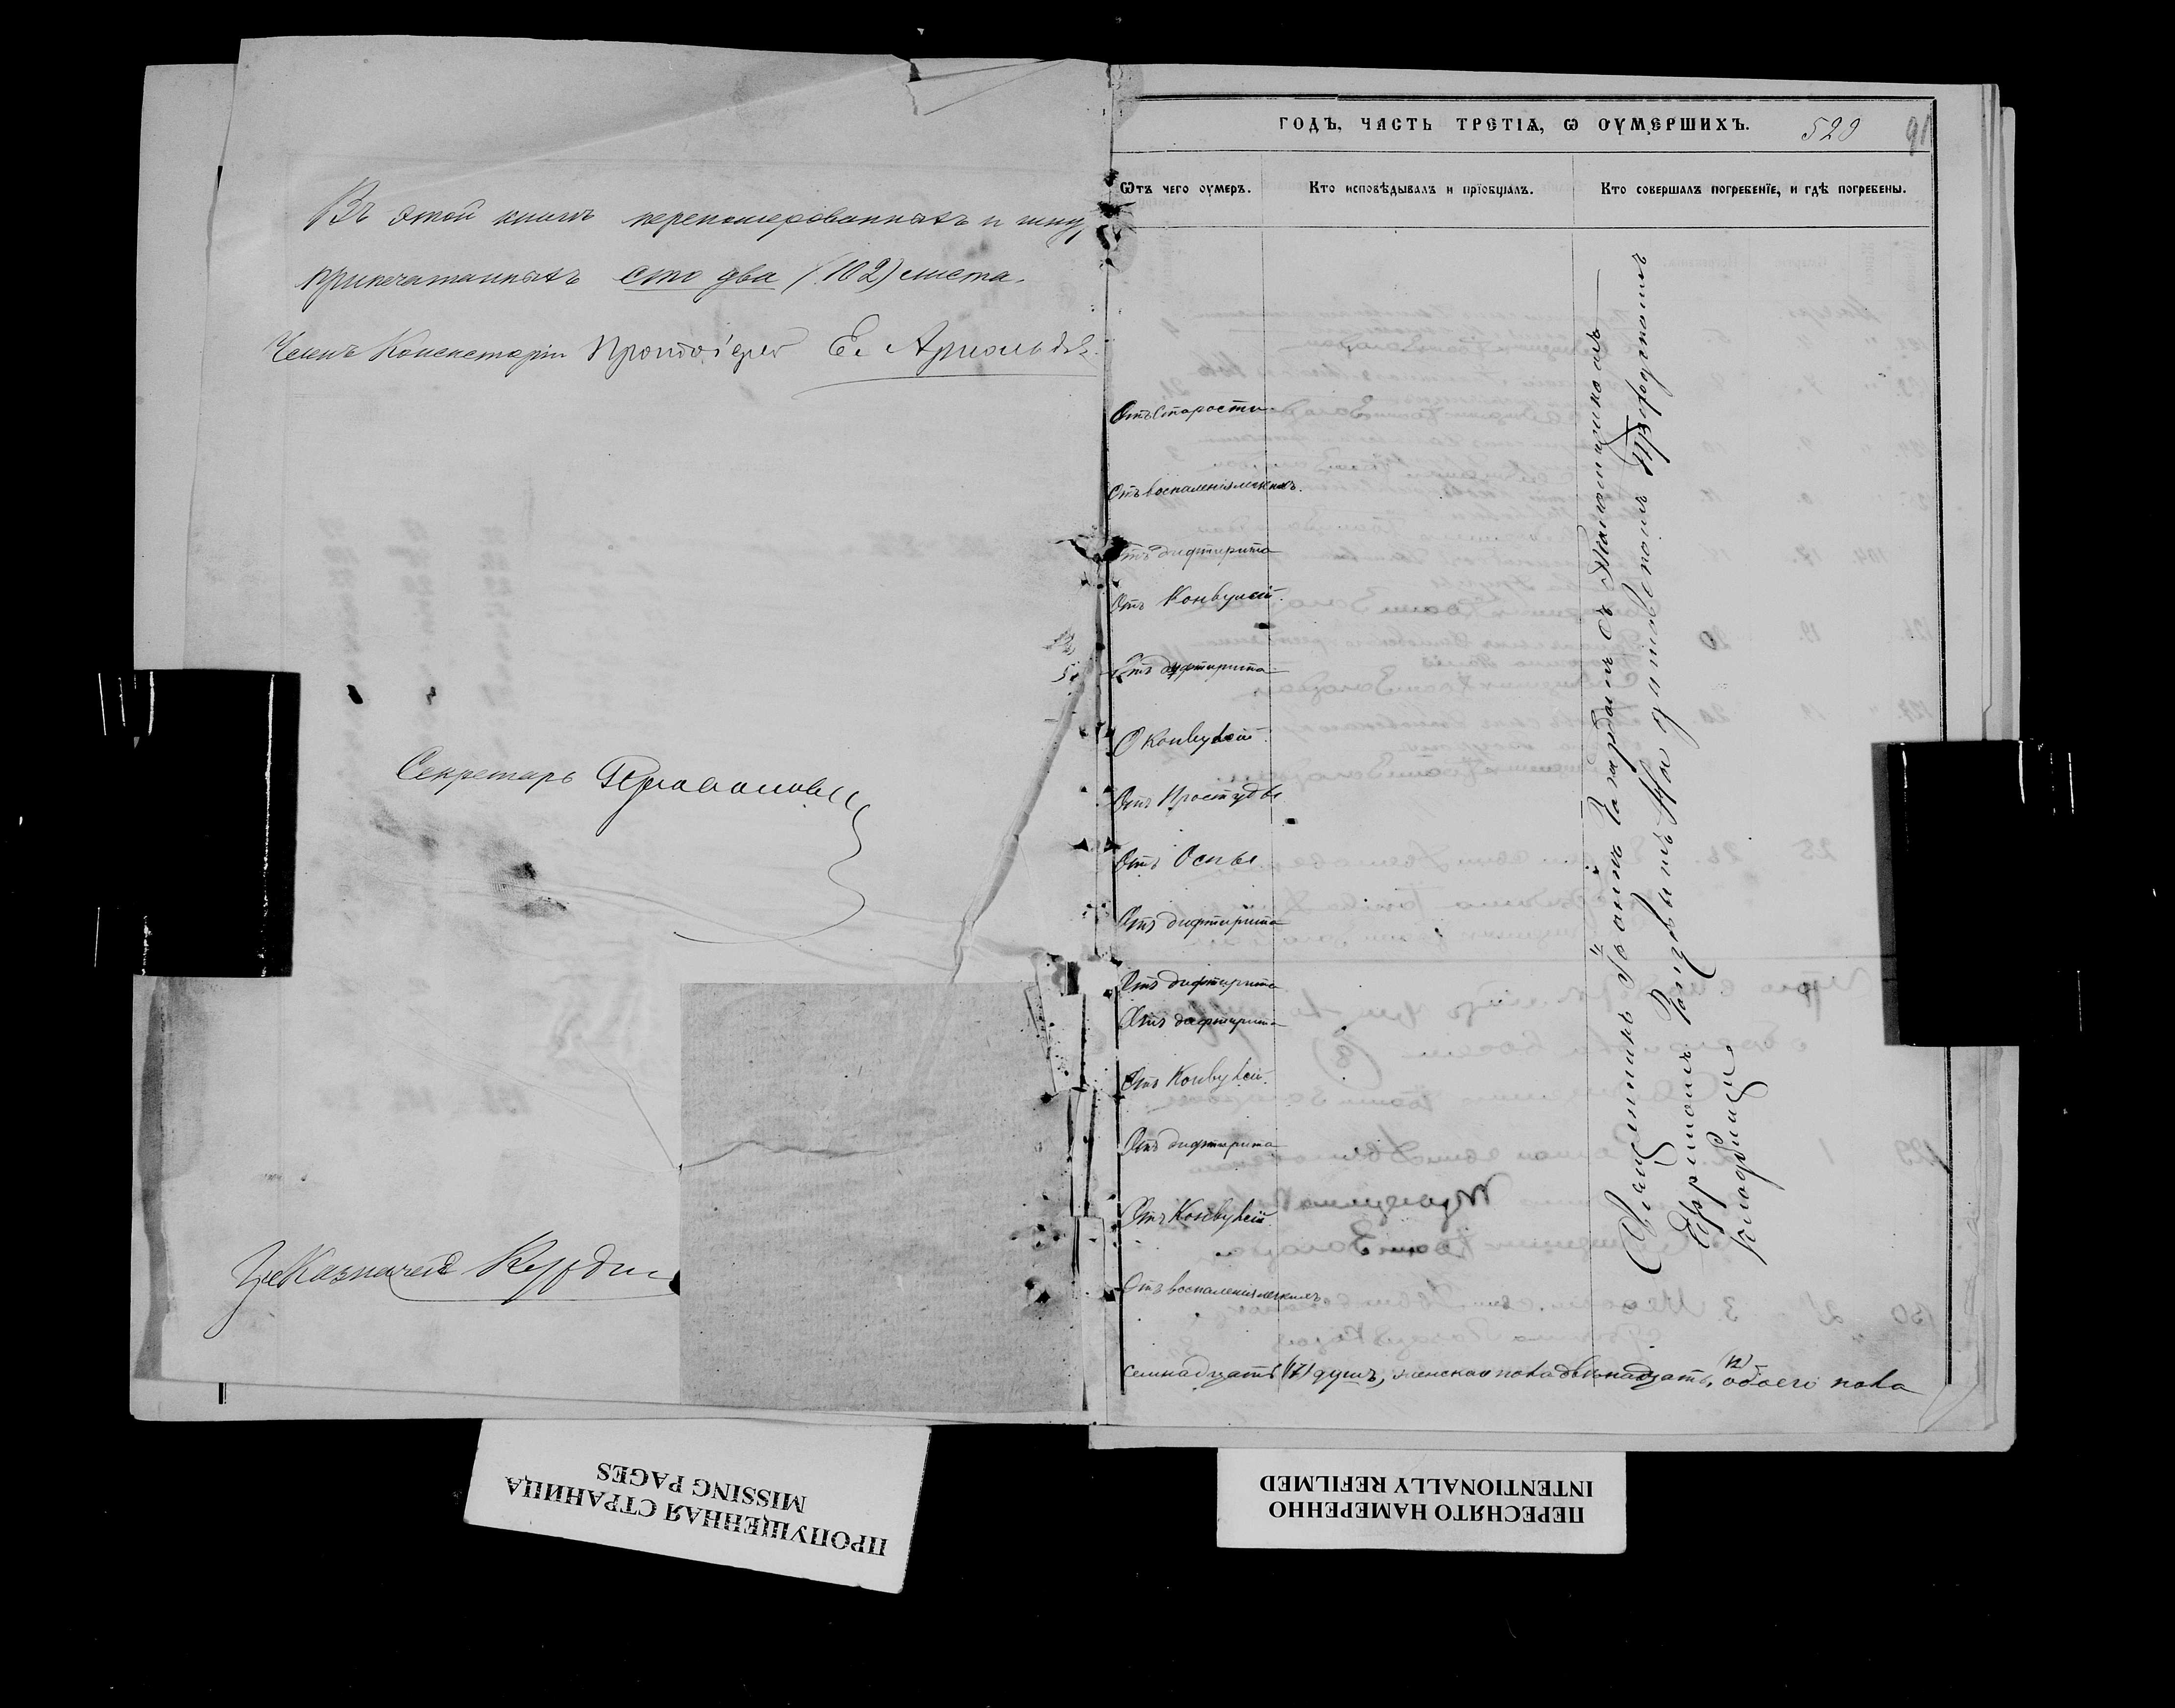 Въ этой книгѣ перенумерованныхъ и шну
припечатанныхъ сто два (102) листа.
Членъ Консисторіи Протоіерей Е. Арнольдъ.
Секретарь
Казначей
ГОДЪ, ЧАСТЬ ТРЕТІѦ, Ѡ ОУМЕРШИХЪ. 529 91
Ѿтъ чего оумеръ. Кто исповѣдывалъ и прїобщалъ. Кто совершалъ погребенїе, и гдѣ погребены.
Отъ Старости
Отъ воспаленія легкихъ.
Отъ дифтирита
Отъ Конвулсій.
Отъ дифтирита
О Конвулсій.
Отъ Простуды
Отъ Оспы
Отъ дифтирита
Отъ дифтирита
Отъ дифтирита
Отъ Конвулсій.
Отъ дифтирита
Отъ Конвулсій
Отъ воспаленія легкихъ
Священникъ Іоаннъ съ
на приходскомъ
кладбищѣ
семнадцать (17) душъ, женскаго пола двенадцать, (12) обоего пола
ПРОПУЩЕННАЯ СТРАНИЦА
MISSING PAGES
ПЕРЕСНЯТО НАМЕРЕННО
INTENTIONALLY REFILMED